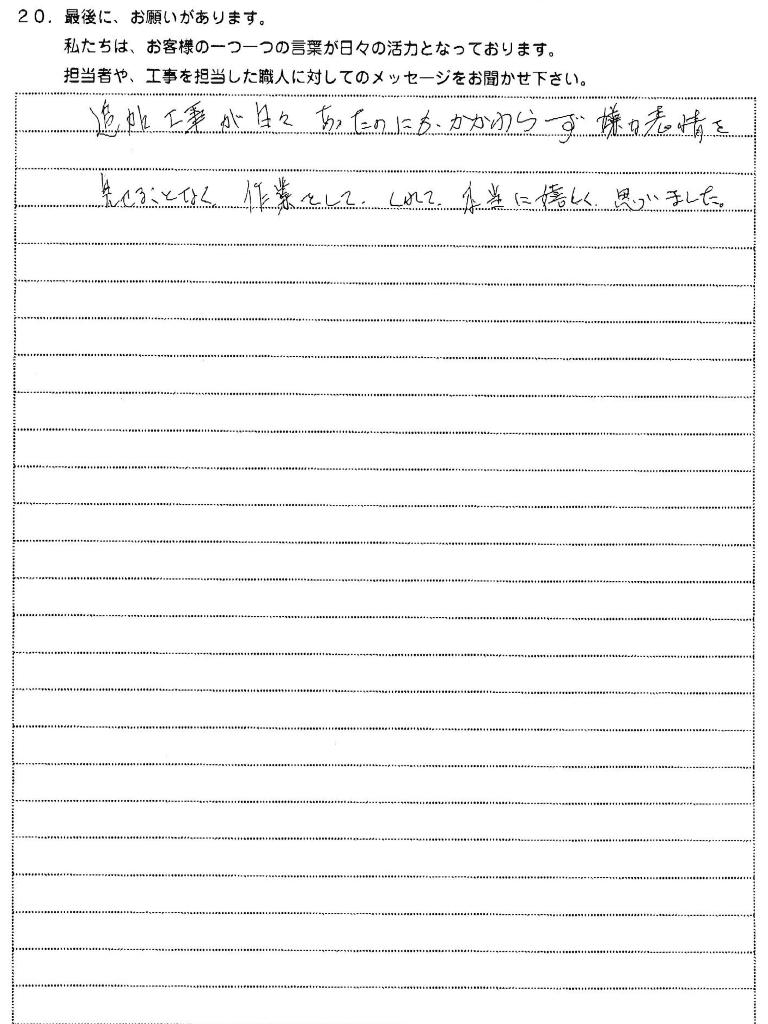 20．最後に、お願いがあります。
私たちは、お客様の一つ一つの言葉が日々の活力となっております。
担当者や、工事を担当した職人に対してのメッセージをお聞かせ下さい。
追加工事が日々あったのにもかかわらず嫌な表情を
見せることなく作業をして、くれて、本当に嬉しく思いました。